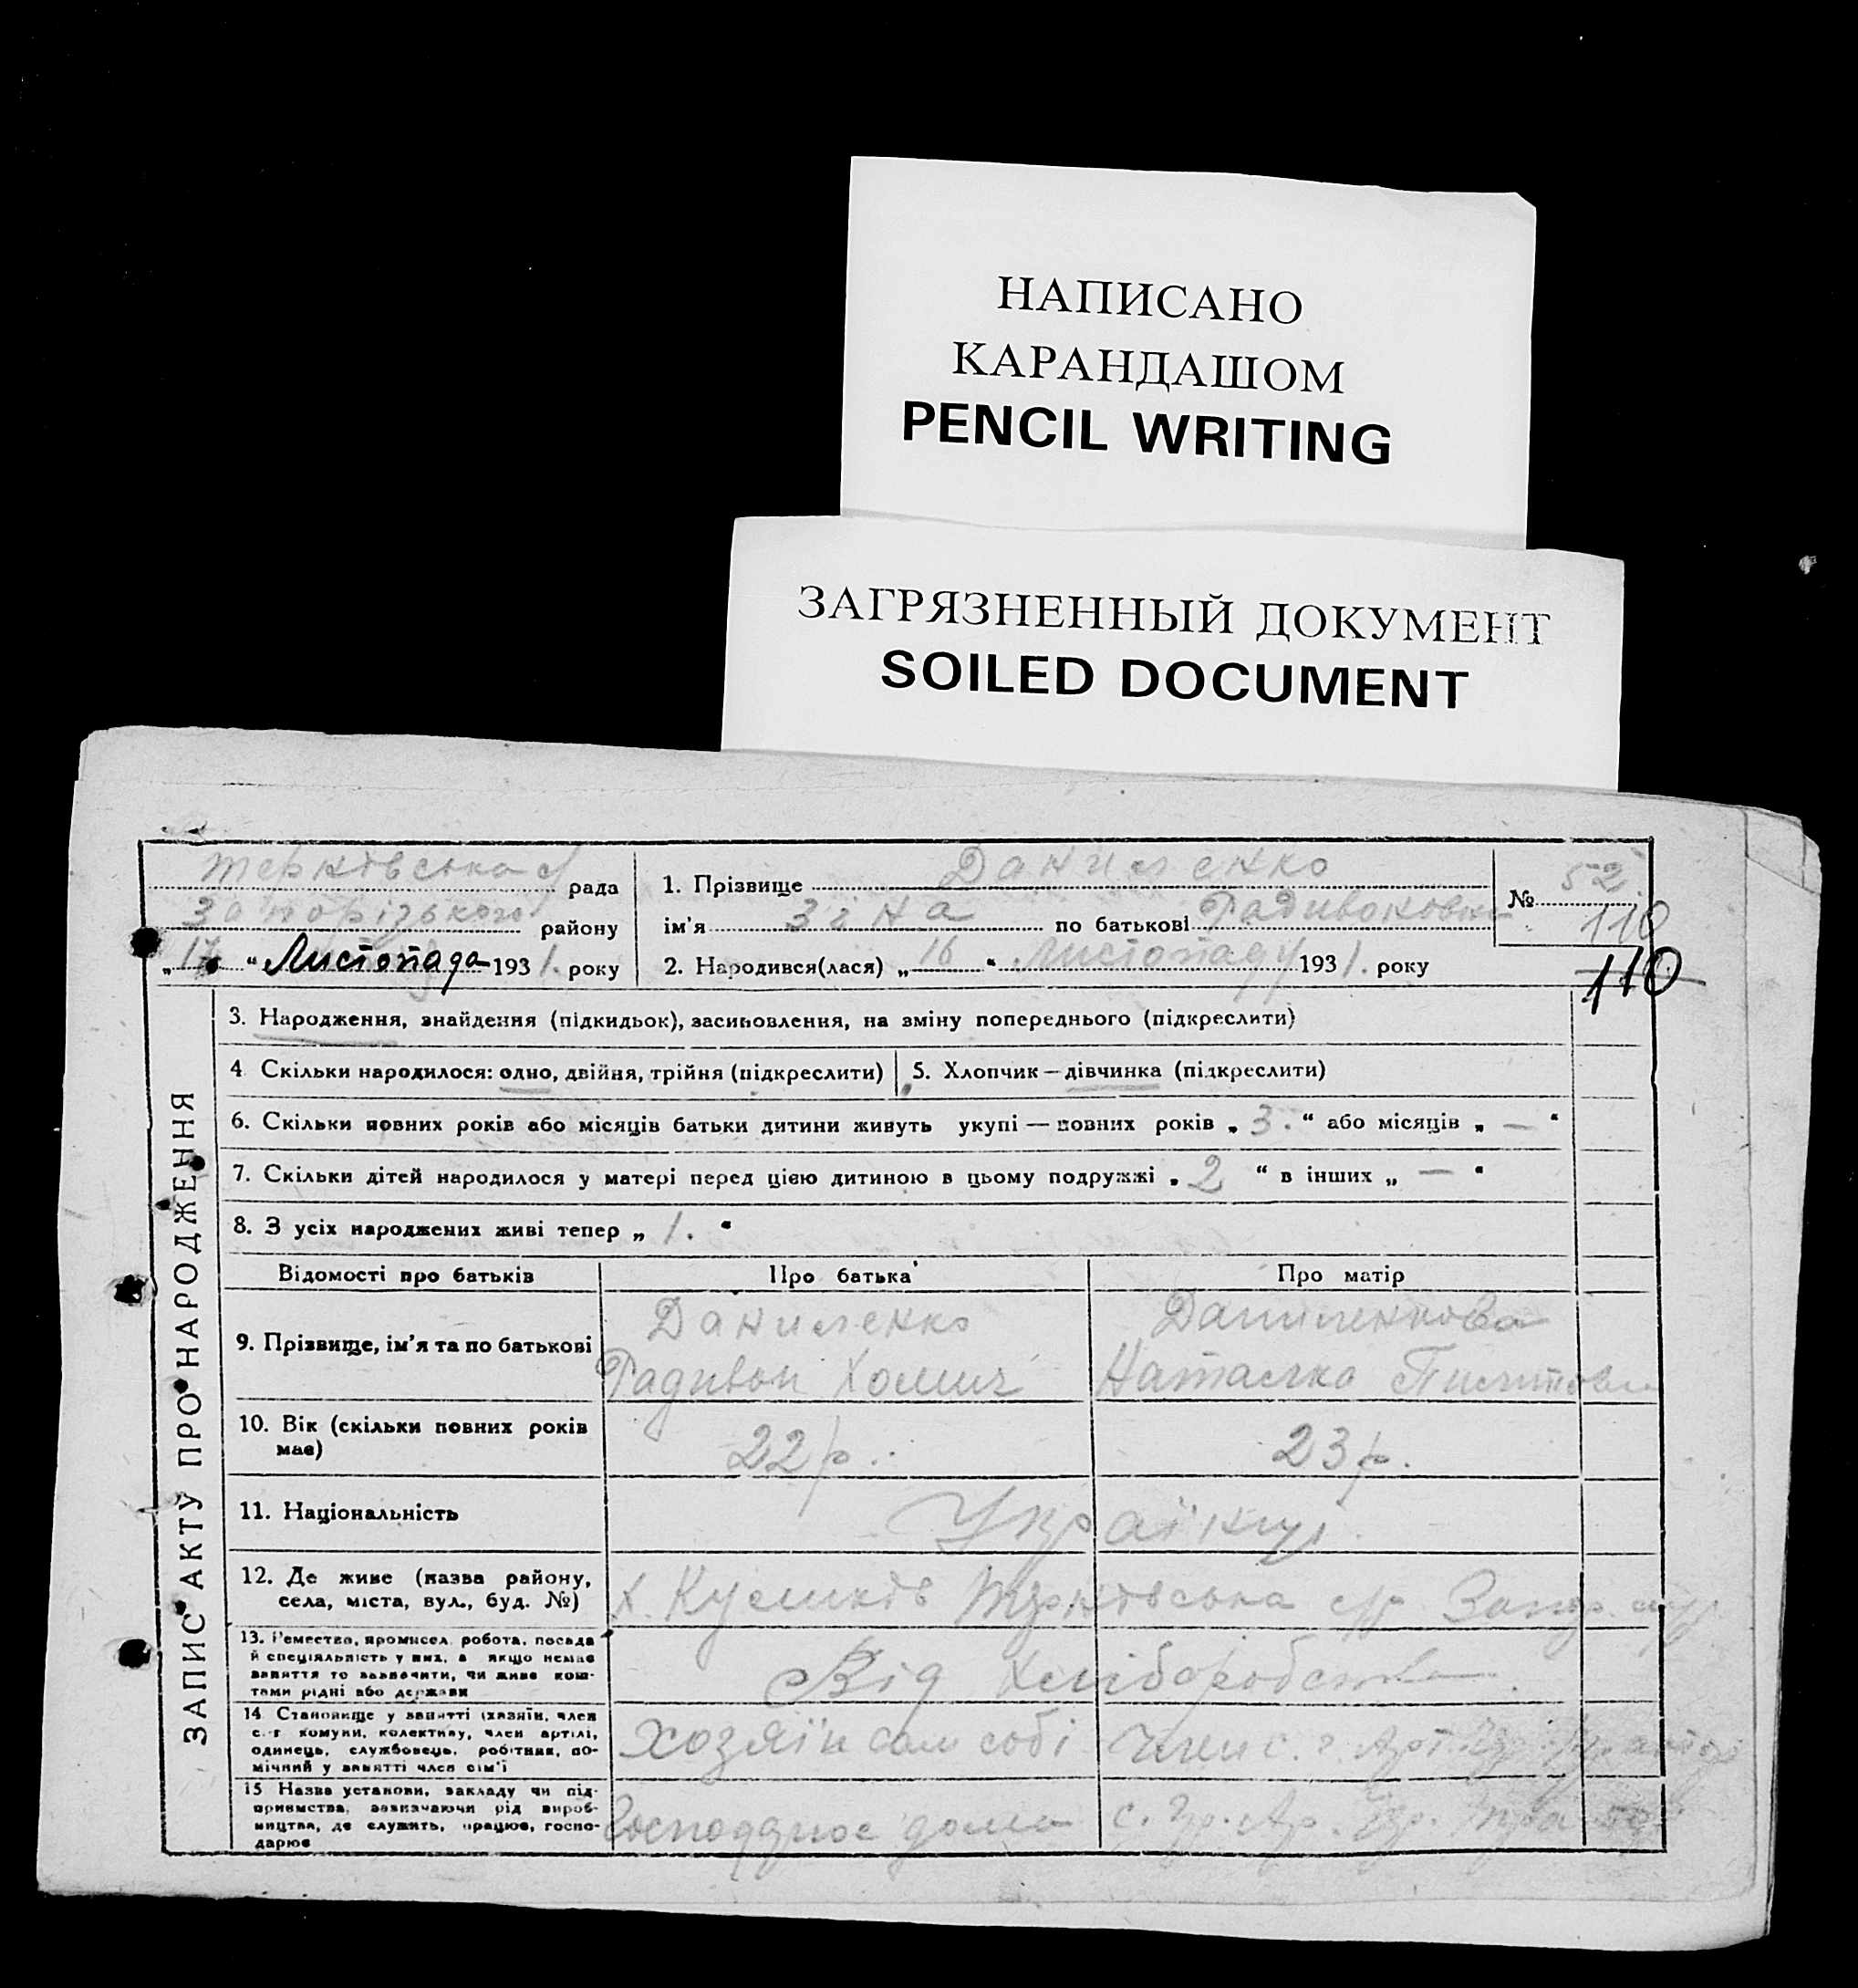 НАПИСАНО
КАРАНДАШОМ
PENCIL WRITING
ЗАГРЯЗНЕННЫЙ ДОКУМЕНТ
SOILED DOCUMENT
рада
району
„ 17 “ Листопада 1931. року
1. Прізвище Даниленко
ім'я Зіна по батькові
2. Народився(лася) „ 16 “ Листопаду 1931. року
№ 52
110
110
ЗАПИС АКТУ ПРО НАРОДЖЕННЯ
3. Народження, знайдення (підкидьок), засиновлення, на зміну попереднього (підкреслити)
4 Скільки народилося: одно, двійня, трійня (підкреслити)
5. Хлопчик — дівчинка (підкреслити)
6. Скільки повних років або місяців батьки дитини живуть укупі — повних років „ 3. “ або місяців „ — “
7. Скільки дітей народилося у матері перед цією дитиною в цьому подружжі „ 2 “ в інших „ — “
8. З усіх народжених живі тепер „ 1. “
Відомості про батьків
Про батька
Про матір
9. Прізвище, ім'я та по батькові
Даниленко
Радивон Хомич
Даниленкова
Наталка
10. Вік (скільки повних років
має)
22 р.
23 р.
11. Національність
Українці
12. Де живе (назва району,
села, міста, вул., буд. №)
х.
13. Ремество, промисел, робота, посада
й спеціяльність у них, а якщо немає
заняття то зазначити, чи живе кош-
тами рідні або держави
Від хліборобства
14 Становище у занятті (хазяїн, член
с.-г комуни, колективу, член артілі,
одинець, службовець, робітник, по-
мічний у занятті член сім'ї
хозяїн сам собі
член с. г.
15 Назва установи, закладу чи під-
приємства, зазначаючи рід вироб-
ництва, де служить, працює, госпо-
дарює
дома